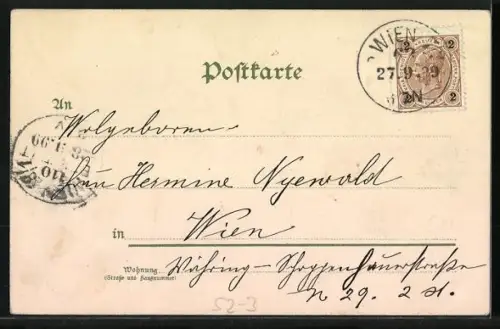 WIEN
27.9.99
WIEN
2 2
2 2
Postkarte
An
Wolgeboren
Frau Hermine Nyewold
in Wien
Wohnung
(Straße und Hausnummer)
Währing - Schoppenhauerstraße
N 29. 2 St.
WIEN
110
52-3